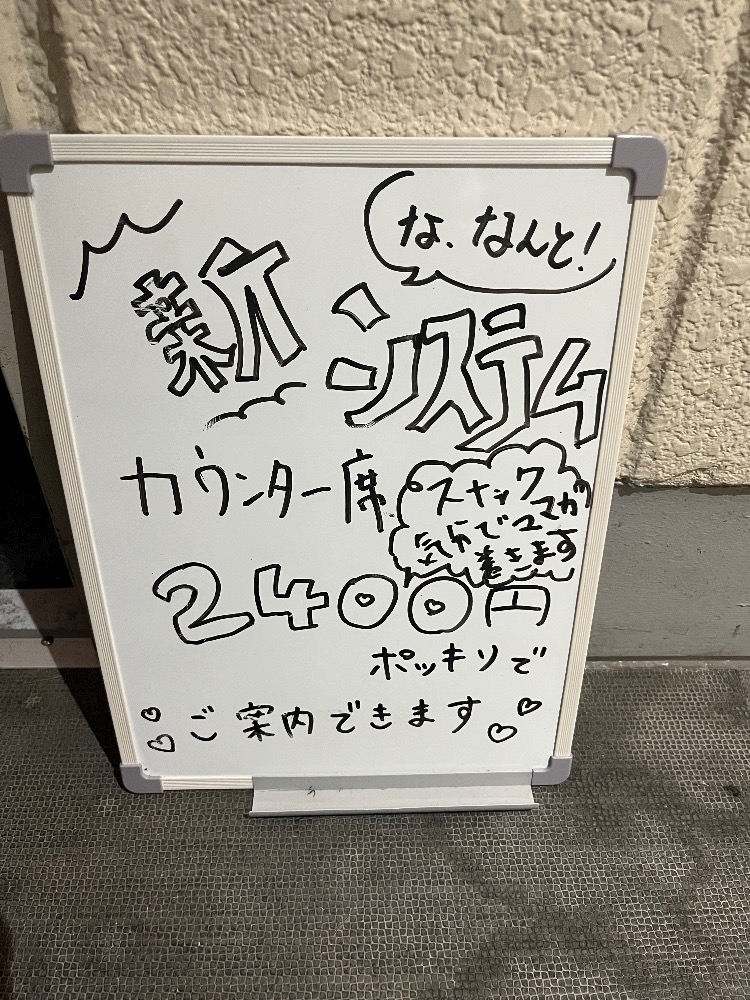 な、なんと!
新システム
カウンター席
スナック
気分で
巻きます
2400円
ポッキリで
ご案内できます